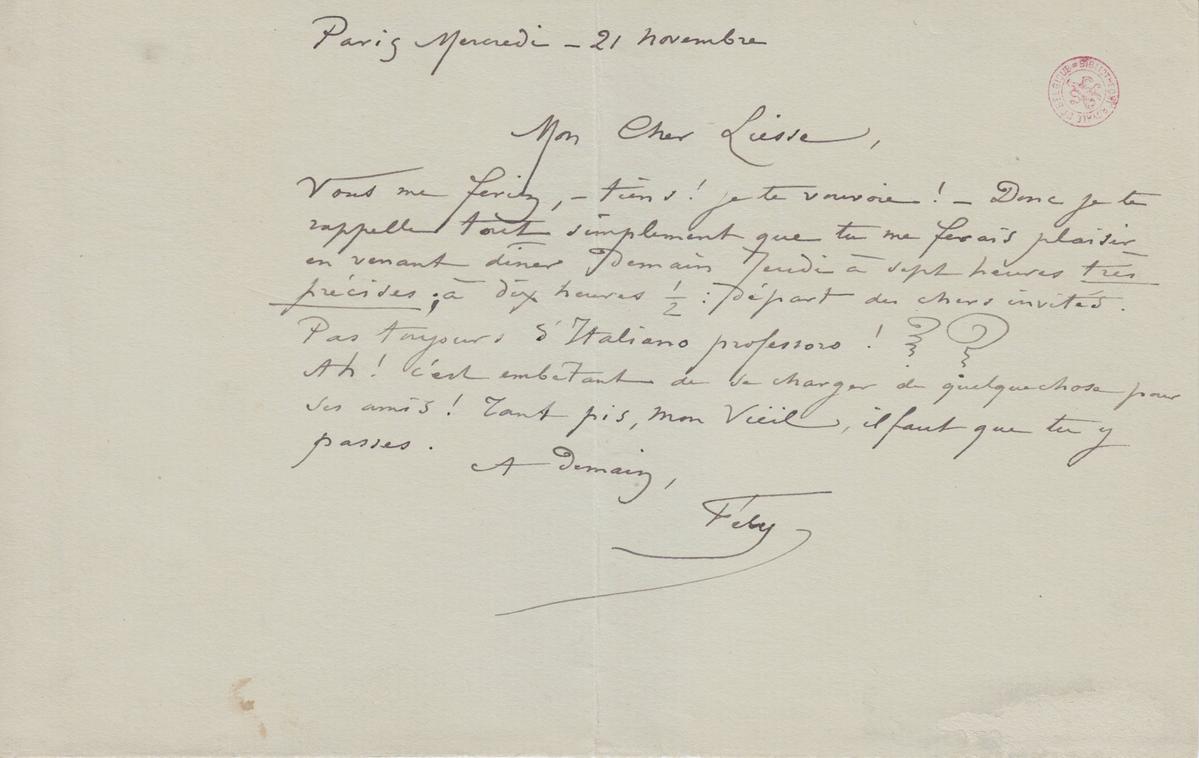 Paris Mercredi – 21 novembre
BIBLIOTHEQUE ROYALE DE BELGIQUE
Mon Cher Liesse,
Vous me feriez, – tiens ! je te vouvoie ! – Donc je te
rappelle tout simplement que tu me ferais plaisir
en venant dîner Demain Jeudi à sept heures très
précises ; à dix heures 1/2 : départ des chers invités.
Pas toujours d'Italiano professoro ! ? ?
Ah ! c'est embêtant de se charger de quelquechose pour
ses amis ! Tant pis, mon Vieil, il faut que tu y
passes.
A Demain,
Fély